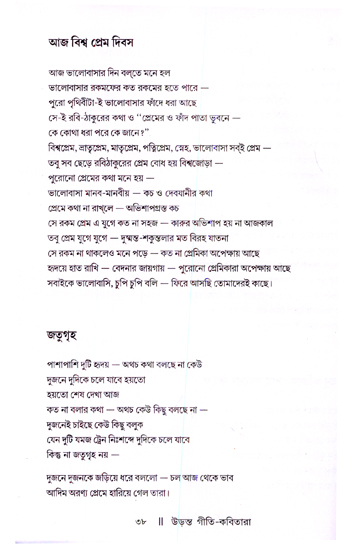 আজ বিশ্ব প্রেম দিবস
আজ ভালোবাসার দিন বল্‌তে মনে হল
ভালোবাসার রকমফের কত রকমের হতে পারে —
পুরো পৃথিবীটা-ই ভালোবাসার ফাঁদে ধরা আছে
সে-ই রবি-ঠাকুরের কথা ও “প্রেমের ও ফাঁদ পাতা ভুবনে —
কে কোথা ধরা পরে কে জানে?”
বিশ্বপ্রেম, ভ্রাতৃপ্রেম, মাতৃপ্রেম, পত্নিপ্রেম, স্নেহ, ভালোবাসা সবই প্রেম —
তবু সব ছেড়ে রবিঠাকুরের প্রেম বোধ হয় বিশ্বজোড়া —
পুরোনো প্রেমের কথা মনে হয় —
ভালোবাসা মানব-মানবীয় — কচ ও দেবযানীর কথা
প্রেমে কথা না রাখ্‌লে — অভিশাপগ্রস্ত কচ
সে রকম প্রেম এ যুগে কত না সহজ — কারুর অভিশাপ হয় না আজকাল
তবু প্রেম যুগে যুগে — দুষ্মন্ত-শকুন্তলার মত বিরহ যাতনা
সে রকম না থাকলেও মনে পড়ে — কত না প্রেমিকা অপেক্ষায় আছে
হৃদয়ে হাত রাখি — বেদনার জায়গায় — পুরোনো প্রেমিকারা অপেক্ষায় আছে
সবাইকে ভালোবাসি, চুপি চুপি বলি — ফিরে আসছি তোমাদেরই কাছে।
জতুগৃহ
পাশাপাশি দুটি হৃদয় — অথচ কথা বলছে না কেউ
দুজনে দুদিকে চলে যাবে হয়তো
হয়তো শেষ দেখা আজ
কত না বলার কথা — অথচ কেউ কিছু বলছে না —
দুজনেই চাইছে কেউ কিছু বলুক
যেন দুটি যমজ ট্রেন নিঃশব্দে দুদিকে চলে যাবে
কিন্তু না জতুগৃহ নয় —
দুজনে দুজনকে জড়িয়ে ধরে বললো — চল আজ থেকে ভাব
আদিম অরণ্য প্রেমে হারিয়ে গেল তারা।
৩৮ ॥ উড়ন্ত গীতি-কবিতারা